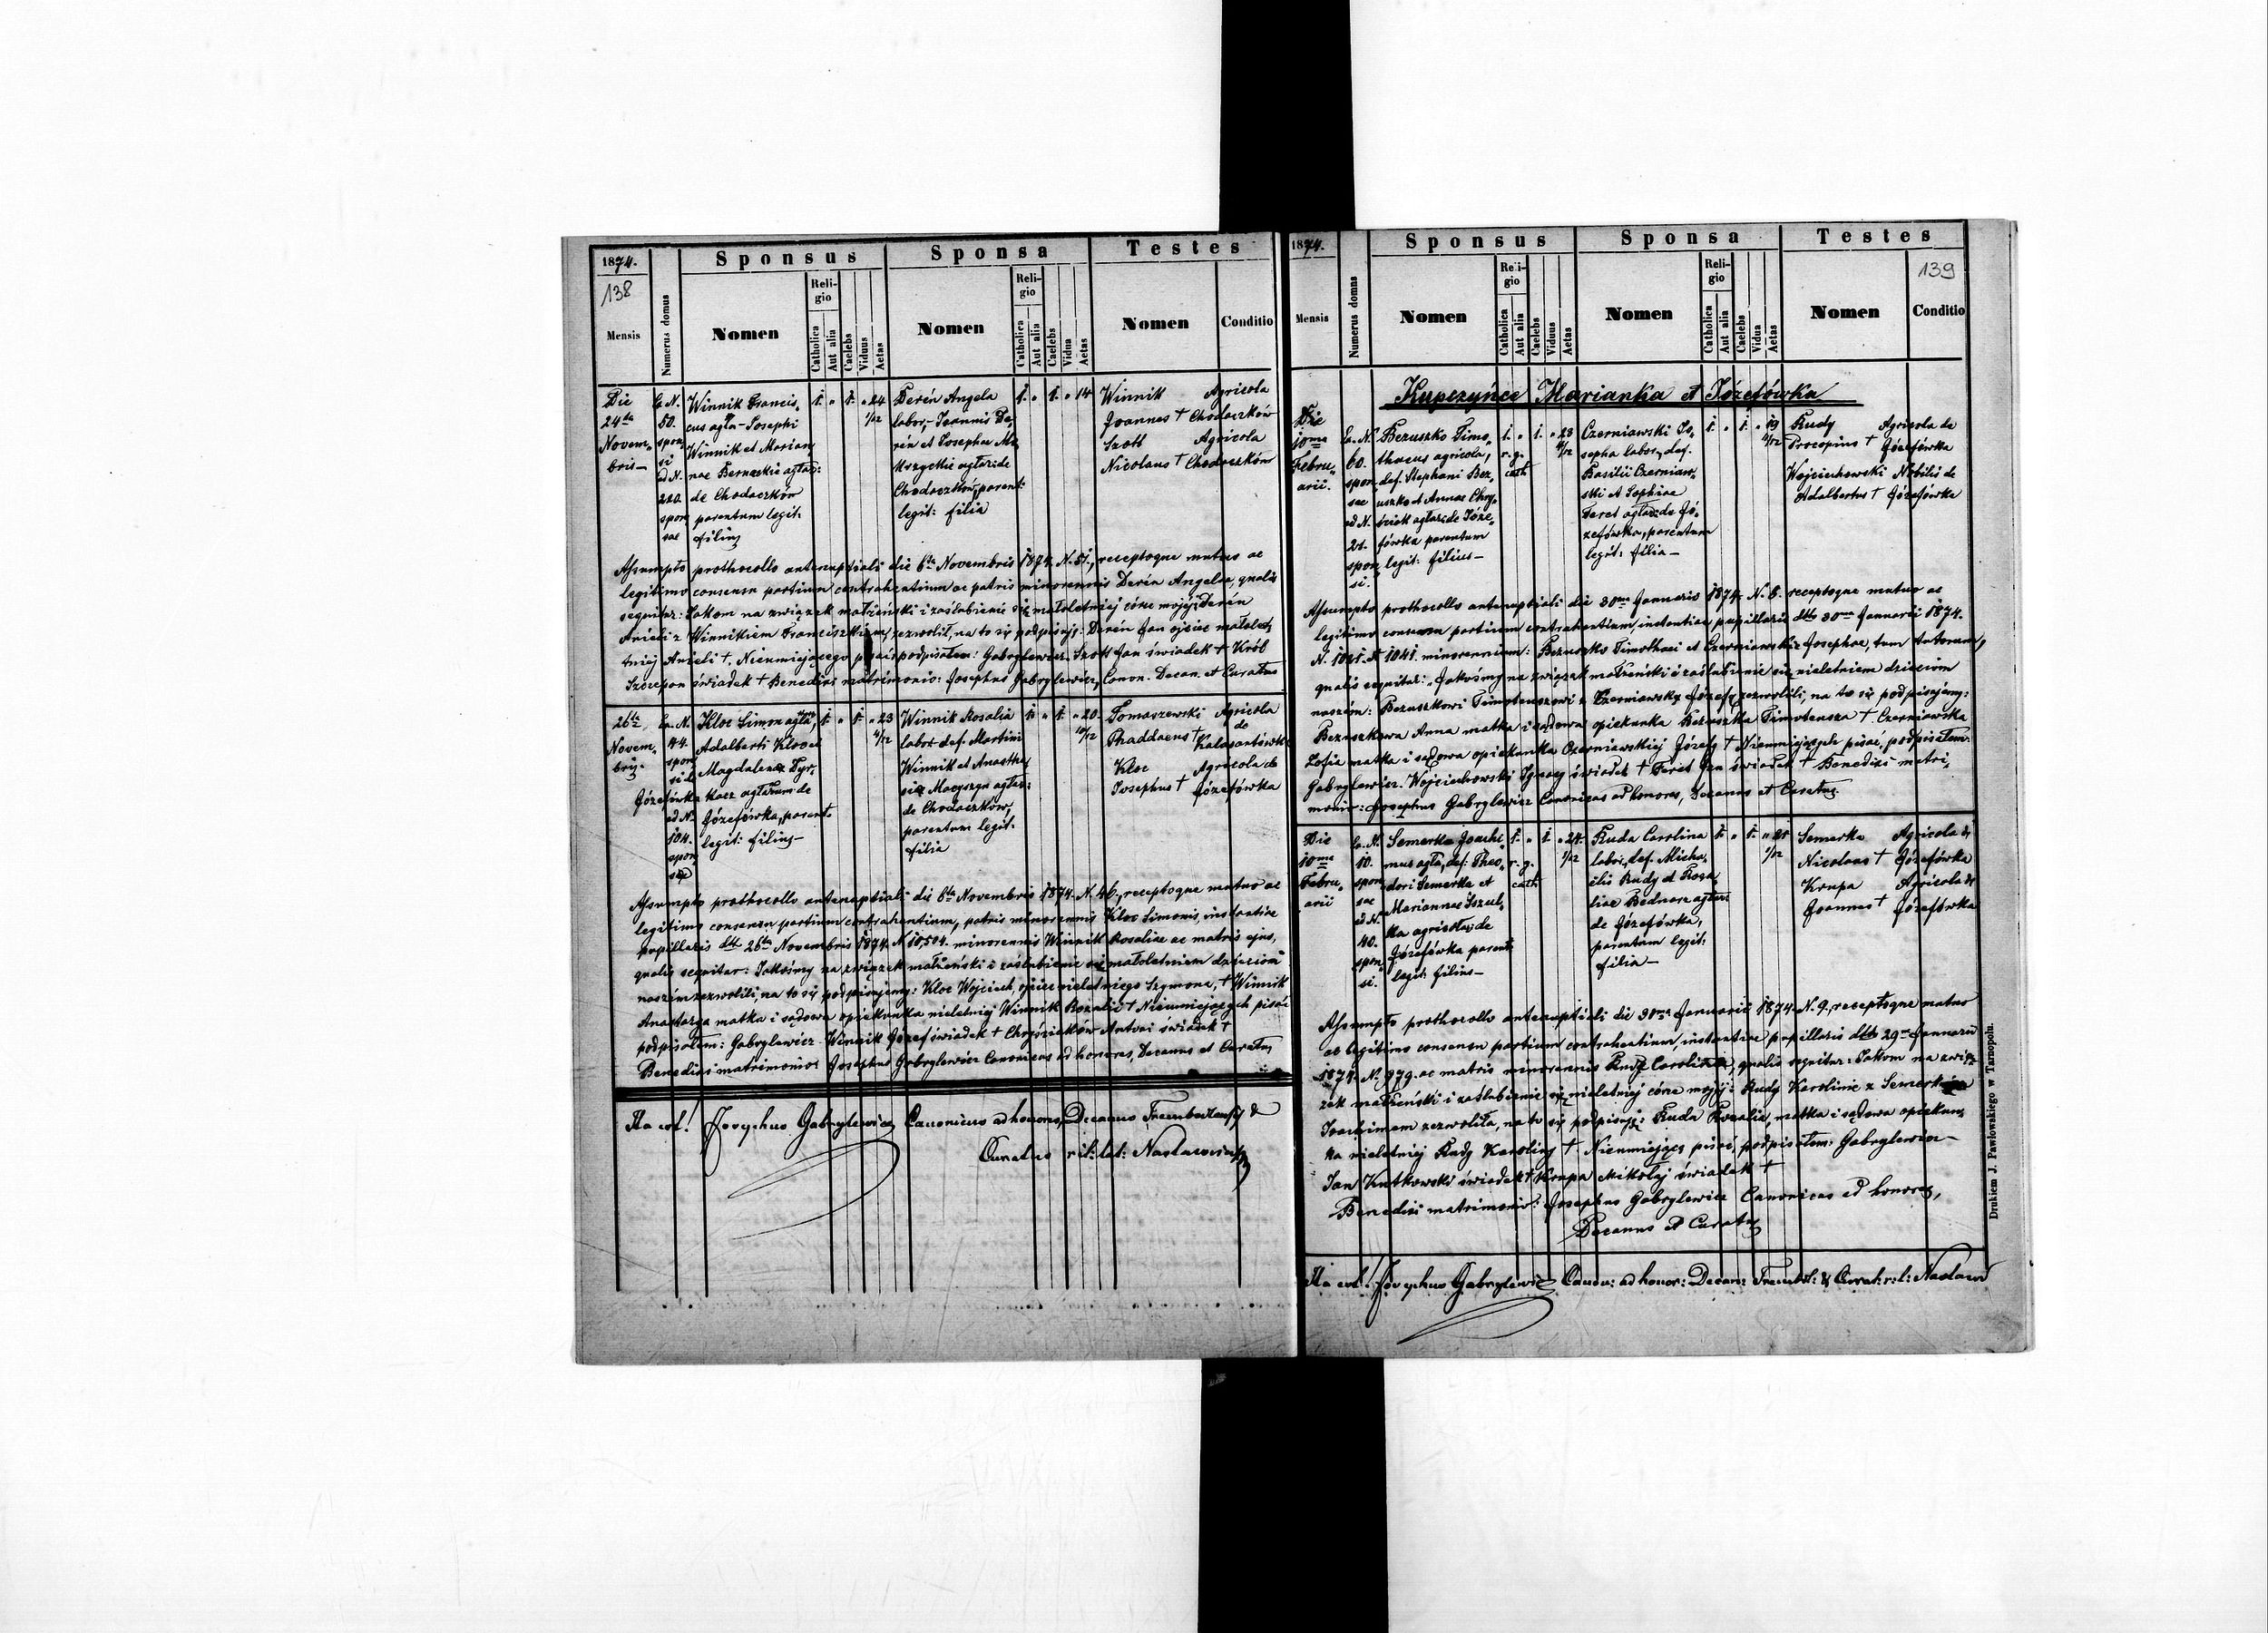 1874.
138
Mensis
Numerus domus
Sponsus
Nomen
Religio
Catholica
Aut alia
Caelebs
Viduus
Aetas
Sponsa
Nomen
Religio
Catholica
Aut alia
Caelebs
Vidua
Aetas
Testes
Nomen
Conditio
Die
24ta
Novem„
bris—
Ex N.
50.
spon„
si
ad N.
220.
spon„
sae
Winnik Francis„
cus agla - Josephi
Winnik et Marian„
nae
de Chodaczków
parentum legit:
filius
1. „ 1. „ 24
1/12
Derén Angela
labor,- Joannis De„
rén et Josephae
agtar: de
Chodaczków, parent:
legit: filia
1. „ 1. „ 14
Winnik Agricola
Joannes † Chodaczków
Szott Agricola
Nicolaus † Chodaczków
Assumpto prothocollo antenuptiali die 6ta Novembris 1874. N. 51., receptoque mutuo ac
legitimo consensu partium contrahentium ac patris minorennis Derén Angelae, qualis
sequitur: Jakom na związek małżeński i zaślubienie się małoletniej córce mojéj: Derén
Anieli z Winnikiem Franciszkiem, zezwolił, na to się podpisuję: Derén Jan ojciec małolet„
niéj Anieli †. Nieumiejącego pisać podpisałem: Gabrylewicz. Szott Jan świadek † Król
Szczepan świadek † Benedixi matrimonio: Josephus Gabrylewicz, Canon. Decan. et Curatus
26ta
Novem„
bris.
Ex N.
44.
spon„
si de
Józefówka
ad N.
104.
spon„
sae
Kloc Simon
Adalberti Kloc et
Magdalenae Tyr„
kacz de
Józefówka, parent.
legit: filius—
1. „ 1. „ 23
4/12
Winnik Rosalia
labor. def. Martini
Winnik et Anastha„
siae Macyszyn agtar:
de Chodaczków,
parentum legit.
filia
1. „ 1. „ 20.
10/12
Tomaszewski Agricola
de
Thaddaeus †
Kloc Agricola de
Josephus † Józefówka
Assumpto prothocollo antenuptiali die 6ta Novembris 1874. N. 46., receptoque mutuo ac
legitimo consensu partium contrahentium, patris minorennis Kloc Simonis, instantiae
pupillaris dtto 26ta Novembris 1874. N. 10504. minorennis Winnik Rosaliae ac matris ejus,
qualis sequitur: Jakośmy na związek małżeński i zaślubienie się małoletniem dzieciom
naszém zezwolili, na to się podpisujemy: Kloc Wojciech, ojciec nieletniego Szymona, † Winnik
Anastazya matka i sądowa opiekunka nieletniéj Winnik Rozalii † Nieumiejących pisać
podpisałem: Gabrylewicz Winnik Józef świadek † Antoni świadek †
Benedixi matrimonio: Josephus Gabrylewicz Canonicus ad honores, Decanus et Curatus
Ita est! Josephus Gabrylewicz Canonicus ad honores, Decanus &
Curatus rit: lat:
1874.
139
Mensis
Numerus domus
Sponsus
Nomen
Religio
Catholica
Aut alia
Caelebs
Viduus
Aetas
Sponsa
Nomen
Religio
Catholica
Aut alia
Caelebs
Vidua
Aetas
Testes
Nomen
Conditio
Kupczyńce Marianka et Józefówka
Die
10ma
Febru„
arii.
Ex. N.
60.
spon„
sae
ad N.
spon„
si.
Bezuszko Timo„
thaeus agricola,
def. Stephani Bez„
uszko et Annae Chry„
de Józe„
fówka parentum
legit: filius—
1. „ 1. „ 23
r. g.
cath
Czerniawski Jo„
sepha labor, def.
Basilii Czerniaw„
ski et Sophiae
Feret de Jó„
zefówka, parentum
legit: filia—
1. „ 1. „ 19
Rudy Agricola de
Procopius † Józefówka
Wojciechowski Nobilis de
Adalbertus † Józefówka
Assumpto prothocollo antenuptiali die 30ma Januaris 1874. N. 8. receptoque mutuo ac
legitimo consensu partium contrahentium, instantiae pupillaris dtto 30ma Januarii 1874.
N. 1021. et 1041. minorennium: Bezuszko Timothaei et Czerniawskie Josephae, tum tutorum,
qualis sequitur: „Jakośmy na związek małżeński i zaślubienie się nieletniem dzieciom
naszém: Bezuszkowi Timoteuszowi z Czerniawską Józefą zezwolili, na to się podpisujemy:
Bezuszkowa Anna matka i sądowa opiekunka Bezuszka Timoteusza † Czerniawska
Zofia matka i sądowa opiekunka Czerniawskiéj Józefy † Nieumiejących pisać, podpisałem:
Gabrylewicz. Wojciechowski Ignacy świadek † Feret Jan świadek † Benedixi matri„
monio: Josephus Gabrylewicz Canonicus ad honores, Decanus et Curatus.
Die
10ma
Febru„
arii
Ex. N.
10.
spon„
sae
ad N.
40.
spon„
si.
Semerka Joachi„
mus agla, def: Theo„
dori Semerka et
Mariannae
ka agricolar; de
Józefówka parent:
legit: filius—
1. „ 1. „ 24.
r. g.
cath
1/12
Ruda Carolina
labor, def. Micha„
elis Rudy et Rosa„
liae Bednarz agtar:
de Józefówka,
parentum legit:
filia—
1. „ 1. „ 21
1/12
Semerka Agricola de
Nicolaus † Józefówka
Krupa Agricola de
Joannes † Józefówka
Assumpto prothocollo antenuptiali die 30ma Januarii 1874. N. 9., receptoque mutuo
ac legitimo consensu partium contrahentium, instantiae pupillaris dtto 29na Januarii
1874. N. 979. ac matris minorennis Rudy Carolinae, qualis sequitur: Jakom na zwią„
zek małżeński i zaślubienie się nieletniéj córce mojéj: Rudy Karolinie z Semerkiem
Joachimem zezwoliła, na to się podpisuję: Ruda Rozalia, matka i sądowa opiekun„
ka nieletniéj Rudy Karoliny † Nieumiejącą pisać, podpisałem: Gabrylewicz—
Jan Kutkowski świadek † Krupa Mikołaj świadek †
Benedixi matrimonio: Josephus Gabrylewicz Canonicus ad honores,
Decanus et Curatus
Ita est! Josephus Gabrylewicz Canon: ad honor: Decan: Trembl: & Curat: r: l:
Drukiem J. Pawłowskiego w Tarnopolu.